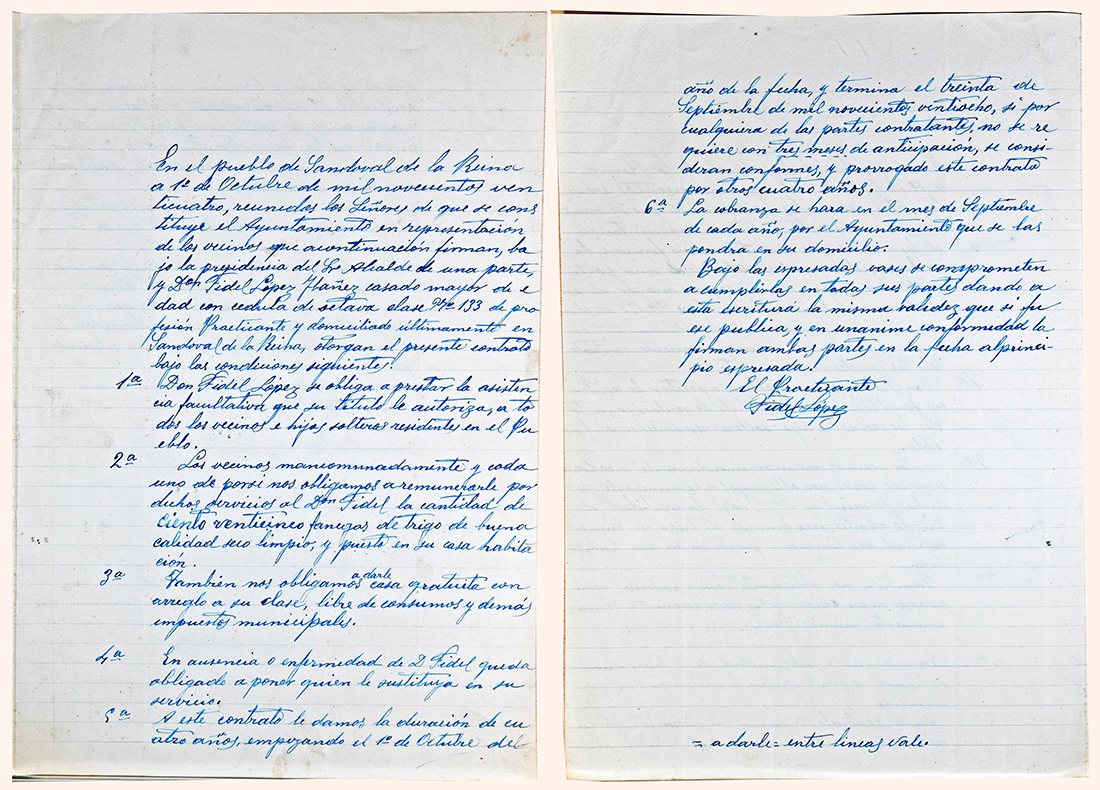 En el pueblo de Sandoval de la Reina
a 1º de Octubre de mil novecientos ven
ticuatro, reunidos los Señores de que se cons
tituye el Ayuntamiento en representacion
de los vecinos que acontinuación firman, ba
jo la presidencia del Sr Alcalde de una parte,
y Don Fidel López Ibáñez casado mayor de e
dad con cedula de octava clase Nº 133 de pro
fesión Practicante y domiciliado últimamente en
Sandoval de la Reina, otorgan el presente contrato
bajo las condiciones siguientes:
1ª Don Fidel López se obliga a prestar la asisten
cia facultativa que su título le autoriza, a to
dos los vecinos e hijos solteros residentes en el Pu
eblo.
2ª Los vecinos mancomunadamente y cada
uno de porsi nos obligamos a remunerarle por
dichos servicios al Don Fidel la cantidad de
ciento venticinco fanegas de trigo de buena
calidad seco limpio, y puesto en su casa habita
ción.
3ª Tambien nos obligamos a darle casa gratuita con
arreglo a su clase, libre de consumos y demás
impuestos municipales.
4ª En ausencia o enfermedad de D Fidel queda
obligado a poner quien le sustituya en su
servicio.
5ª A este contrato le damos la duración de cu
atro años, empezando el 1º de Octubre del
año de la fecha, y termina el treinta de
Septiembre de mil novecientos ventiocho, si por
cualquiera de las partes contratantes, no se re
quiere con tres meses de anticipación, se consi-
deran conformes, y prorrogado este contrato
por otros cuatro años.
6ª La cobranza se hara en el mes de Septiembre
de cada año, por el Ayuntamiento que se las
pondra en su domicilio.
Bajo las espresadas vases se comprometen
a cumplirlas en todas sus partes dando a
esta escritura la misma validez que si fu
ese publica, y en unanime conformidad la
firman ambas partes en la fecha alprinci-
pio espresada.
El Practicante
Fidel López
= a darle = entre lineas vale.